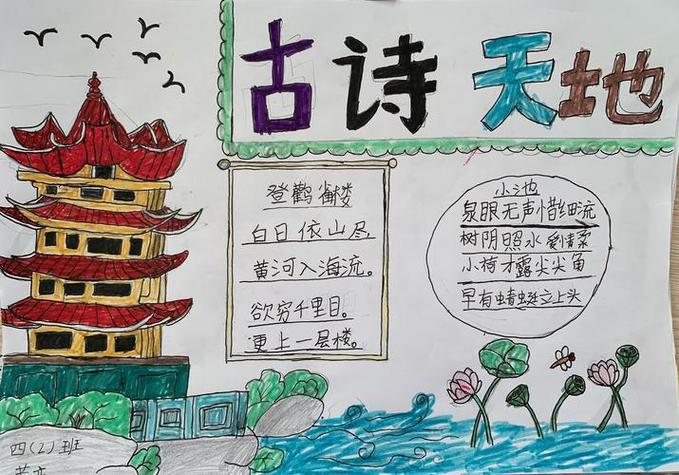 古诗天地
登鹳雀楼
白日依山尽
黄河入海流。
欲穷千里目。
更上一层楼。
小池
泉眼无声惜细流
树阴照水爱情柔
小荷才露尖尖角
早有蜻蜓立上头
四(2)班